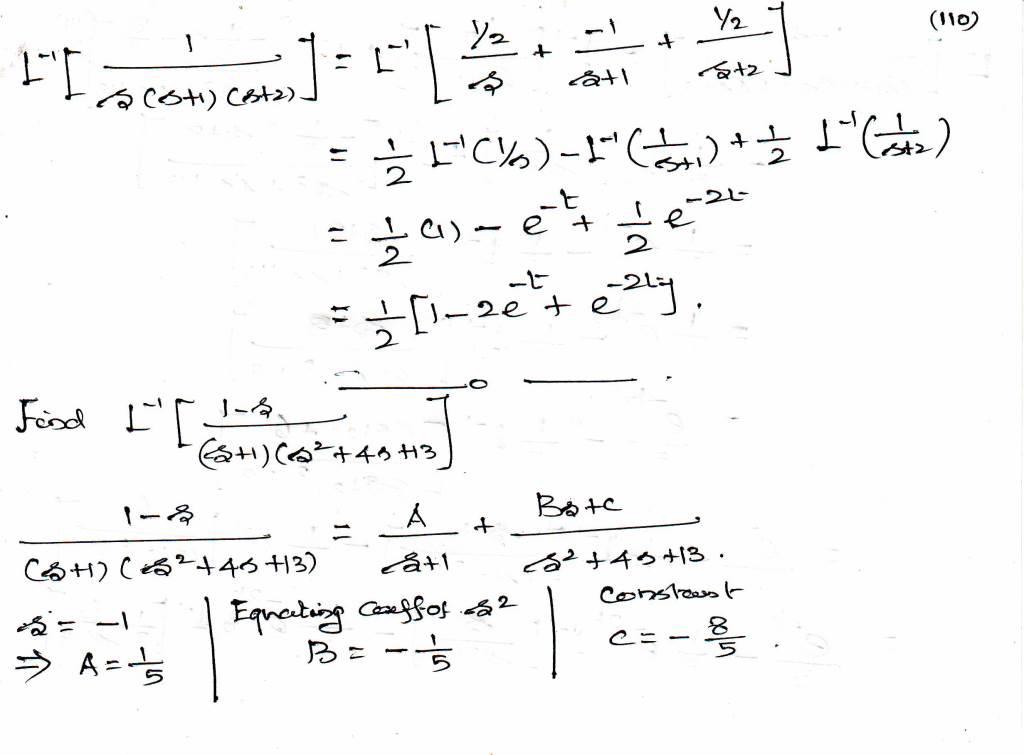 (110)
L⁻¹[ 1 / s(s+1)(s+2) ] = L⁻¹[ ½ / s + -1 / s+1 + ½ / s+2 ]
= 1/2 L⁻¹(1/s) - L⁻¹(1/s+1) + 1/2 L⁻¹(1/s+2)
= 1/2 (1) - e^-t + 1/2 e^-2t
= 1/2 [1 - 2e^-t + e^-2t].
Find L⁻¹[ 1-s / (s+1)(s²+4s+13 ]
1-s / (s+1)(s²+4s+13) = A / s+1 + Bs+C / s²+4s+13 .
s = -1 | Equating coeff of s² | Constant
⇒ A = 1/5 | B = - 1/5 | C = - 8/5 .